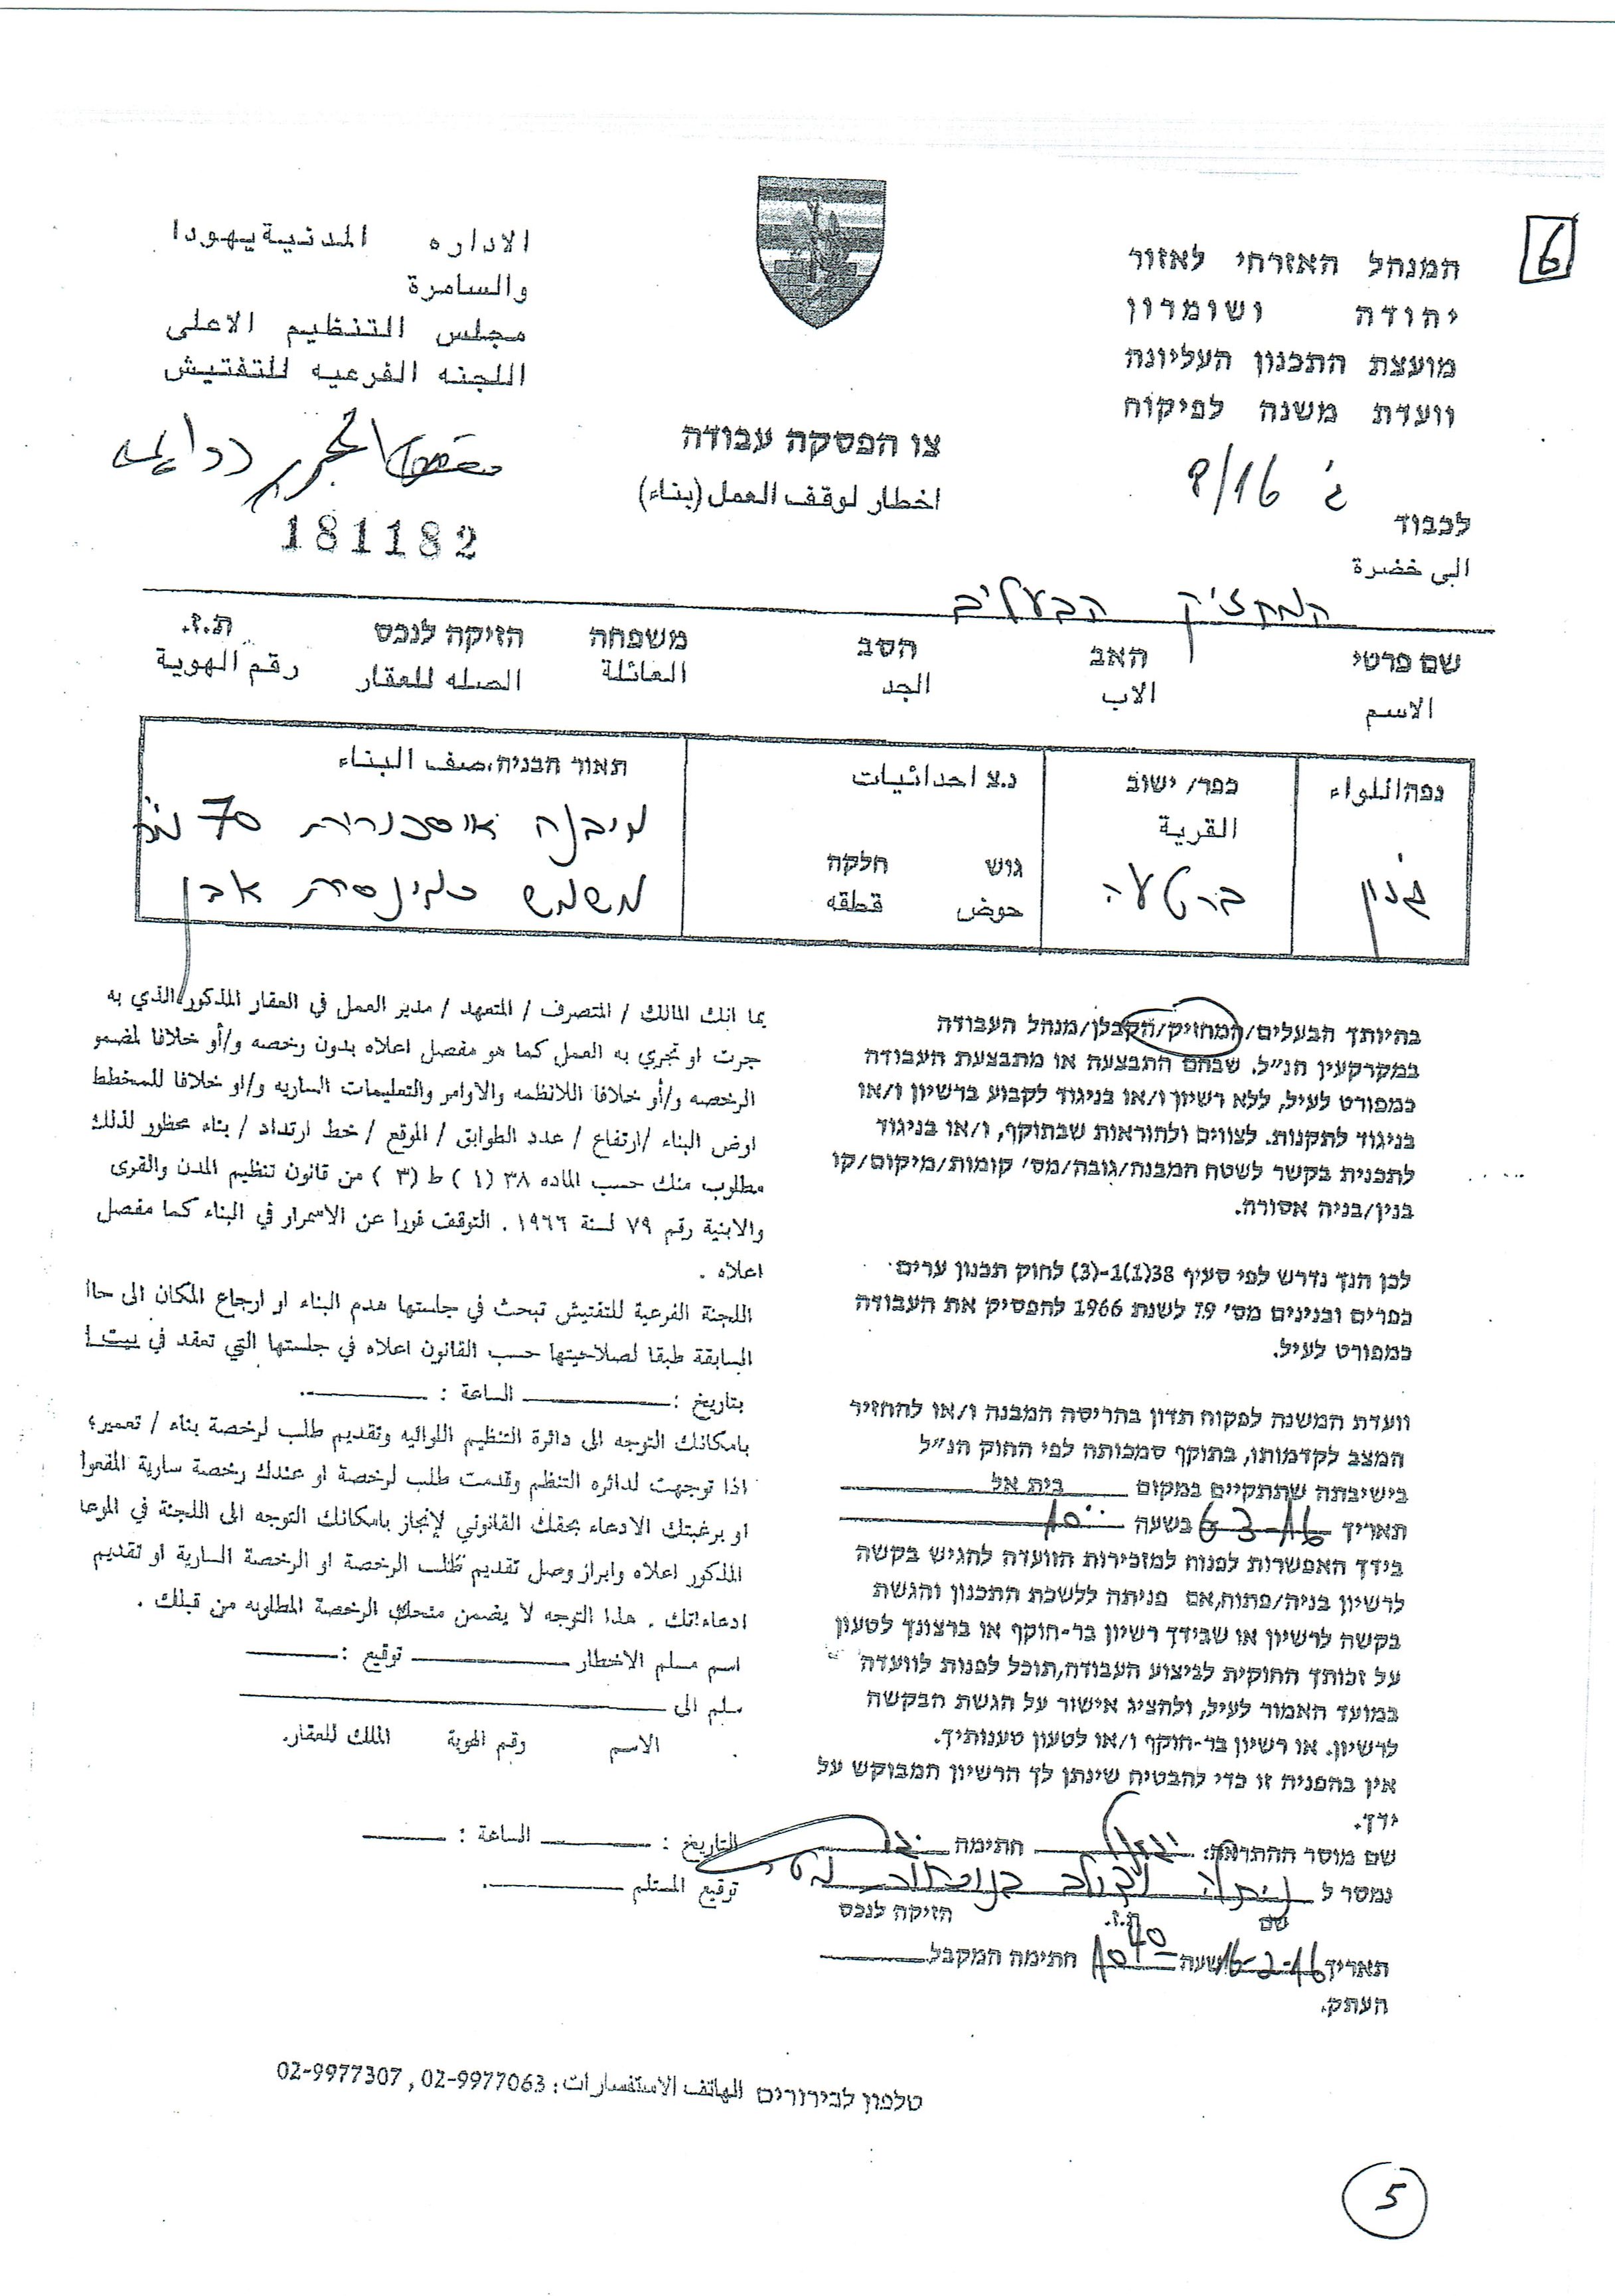 6
המנהל האזרחי לאזור
יהודה ושומרון
מועצת התכנון העליונה
וועדת משנה לפיקוח
الاداره المدنية يهودا
والسامرة
مجلس التنظيم الاعلى
اللجنه الفرعيه للتفتيش
צו הפסקה עבודה
اخطار لوقف العمل (بناء)
8/16
181182
לכבוד
الى حضرة
המחזיק הבעלים
שם פרטי האב הסב משפחה הזיקה לנכס ת.ז.
الاسم الاب الجد العائلة الصله للعقار رقم الهوية
נפה/اللواء
כפר/ ישוב
القرية
ברטעה
נ.צ احداثيات
גוש חלקה
حوض قطقه
תאור הבניה،صف البناء
מיבנה 70
משמש אבן
בהיותך הבעלים/המחזיק/הקבלן/מנהל העבודה
במקרקעין הנ״ל. שבהם התבצעה או מתבצעת העבודה
כמפורט לעיל, ללא רשיון ו/או בניגוד לקבוע ברשיון ו/או
בניגוד לתקנות. לצווים ולהוראות שבתוקף, ו/או בניגוד
לתכנית בקשר לשטח המבנה/גובה/מס׳ קומות/מיקום/קו
בנין/בניה אסורה.
לכן הנך נדרש לפי סעיף 38(1)1-(3) לחוק תכנון ערים
כפרים ובנינים מס׳ 79 לשנת 1966 להפסיק את העבודה
כמפורט לעיל.
וועדת המשנה לפקוח תדון בהריסה המבנה ו/או להחזיר
המצב לקדמותו, בתוקף סמכותה לפי החוק הנ״ל
בישיבתה שתתקיים במקום בית אל
תאריך 6-3-16 בשעה 10:00
בידך האפשרות לפנות למזכירות הוועדה להגיש בקשה
לרשיון בניה/פתוח,אם פניתה ללשכת התכנון והגשת
בקשה לרשיון או שבידך רשיון בר-תוקף או ברצונך לטעון
על זכותך החוקית לביצוע העבודה,תוכל לפנות לוועדה
במועד האמור לעיל, ולהציג אישור על הגשת הבקשה
לרשיון. או רשיון בר-תוקף ו/או לטעון טענותיך.
אין בהפניה זו כדי להבטיח שינתן לך הרשיון המבוקש על
ידך.
שם מוסר ההתראה: חתימה
נמסר ל
שם ת.ז. הזיקה לנכס
תאריך 16-2-16 שעה 10 40 חתימה המקבל
העתק.
بما انك المالك / المتصرف / المتعهد / مدير العمل في العقار المذكور الذي به
جرت او تجري به العمل كما هو مفصل اعلاه بدون رخصه و/أو خلافا لمضمو
الرخصه و/أو خلافا اللانظمه والاوامر والتعليمات الساريه و/او خلافا للمخطط
اوض البناء /ارتفاع / عدد الطوابق / الموقع / خط ارتداد / بناء محظور لذلك
مطلوب منك حسب الماده ٣٨ (١ ) ط (٣ ) من قانون تنظيم المدن والقرى
والابنية رقم ٧٩ لسنة ١٩٦٦ . التوقف فورا عن الاسمرار في البناء كما مفصل
اعلاه .
اللجنة الفرعية للتفتيش تبحث في جلستها هدم البناء او ارجاع المكان الى حاا
السابقة طبقا لصلاحيتها حسب القانون اعلاه في جلستها التي تعقد في بيت ا
بتاريخ : الساعة :
بامكانك التوجه الى دائرة التنظيم اللوائيه وتقديم طلب لرخصة بناء / تعمير؛
اذا توجهت لدائره التنظم وقدمت طلب لرخصة او عندك رخصة سارية المفعوا
او برغبتك الادعاء بحقك القانوني لإنجاز بامكانك التوجه الى اللجنة في الموعا
المذكور اعلاه وابراز وصل تقديم طلب الرخصة او الرخصة السارية او تقديم
ادعاءاتك . هذا التوجه لا يضمن منحك الرخصة المطلوبه من قبلك .
اسم مسلم الاخطار توقيع :
سلم الى
الاسم رقم الهوية الملك للعقار.
التاريخ : الساعة :
توقيع المستلم
טלפון לבירורים الهاتف الاستفسارات : 02-9977063 , 02-9977307
5